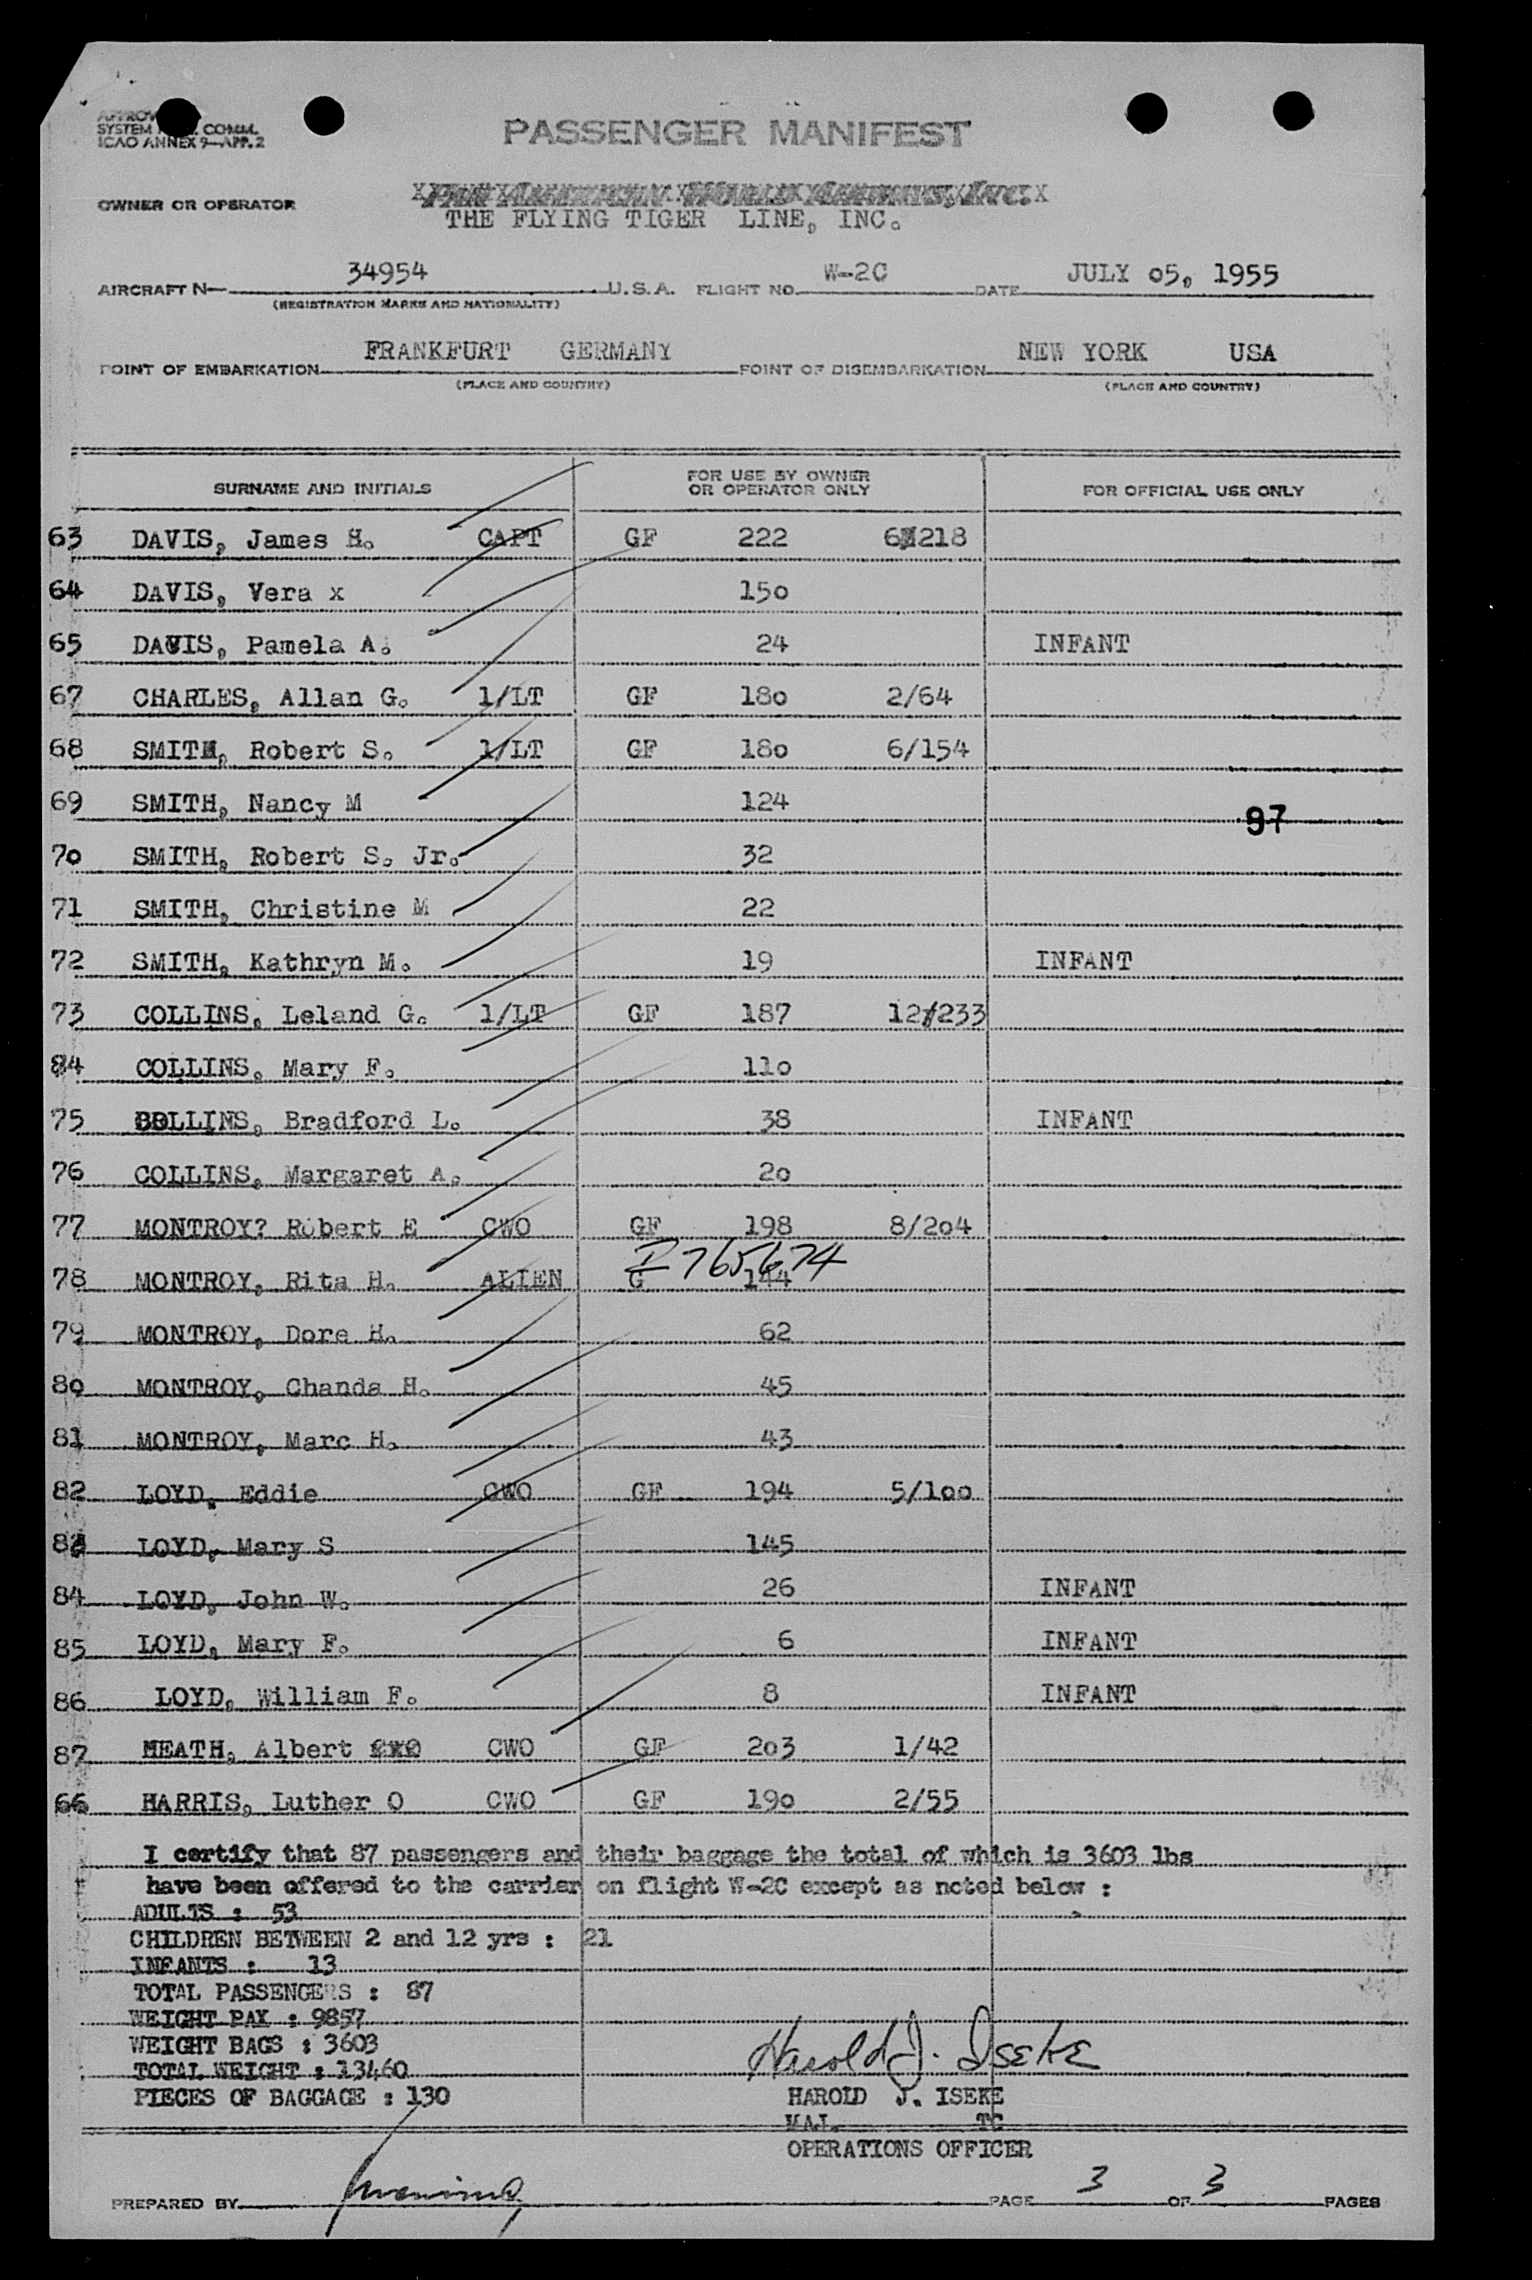 SYSTEM COMM.
ICAO ANNEX 9—APP. 2
PASSENGER MANIFEST
OWNER OR OPERATOR
THE FLYING TIGER LINE, INC.
AIRCRAFT N— 34954 U.S.A. FLIGHT NO. W-2C DATE JULY 05, 1955
(REGISTRATION MARKS AND NATIONALITY)
POINT OF EMBARKATION FRANKFURT GERMANY POINT OF DISEMBARKATION NEW YORK USA
(PLACE AND COUNTRY) (PLACE AND COUNTRY)
SURNAME AND INITIALS FOR USE BY OWNER OR OPERATOR ONLY FOR OFFICIAL USE ONLY
63 DAVIS, James H. CAPT GF 222 6/218
64 DAVIS, Vera x 150
65 DAVIS, Pamela A. 24 INFANT
67 CHARLES, Allan G. 1/LT GF 180 2/64
68 SMITH, Robert S. 1/LT GF 180 6/154
69 SMITH, Nancy M 124
97
70 SMITH, Robert S. Jr. 32
71 SMITH, Christine M 22
72 SMITH, Kathryn M. 19 INFANT
73 COLLINS, Leland G. 1/LT GF 187 12/233
84 COLLINS, Mary F. 110
75 COLLINS, Bradford L. 38 INFANT
76 COLLINS, Margaret A. 20
77 MONTROY? Robert E CWO GF 198 8/204
I 765674
78 MONTROY, Rita H. ALIEN G 144
79 MONTROY, Dore H. 62
80 MONTROY, Chanda H. 45
81 MONTROY, Marc H. 43
82 LOYD, Eddie CWO GF 194 5/100
83 LOYD, Mary S 145
84 LOYD, John W. 26 INFANT
85 LOYD, Mary F. 6 INFANT
86 LOYD, William F. 8 INFANT
87 HEATH, Albert CWO GF 203 1/42
66 HARRIS, Luther O CWO GF 190 2/55
I certify that 87 passengers and their baggage the total of which is 3603 lbs
have been offered to the carrier on flight W-2C except as noted below :
ADULTS : 53
CHILDREN BETWEEN 2 and 12 yrs : 21
INFANTS : 13
TOTAL PASSENGERS : 87
WEIGHT PAX : 9857
WEIGHT BAGS : 3603
TOTAL WEIGHT : 13460
Harold J. Iseke
PIECES OF BAGGAGE : 130 HAROLD J. ISEKE
MAJ. TC
OPERATIONS OFFICER
PREPARED BY PAGE 3 OF 3 PAGES